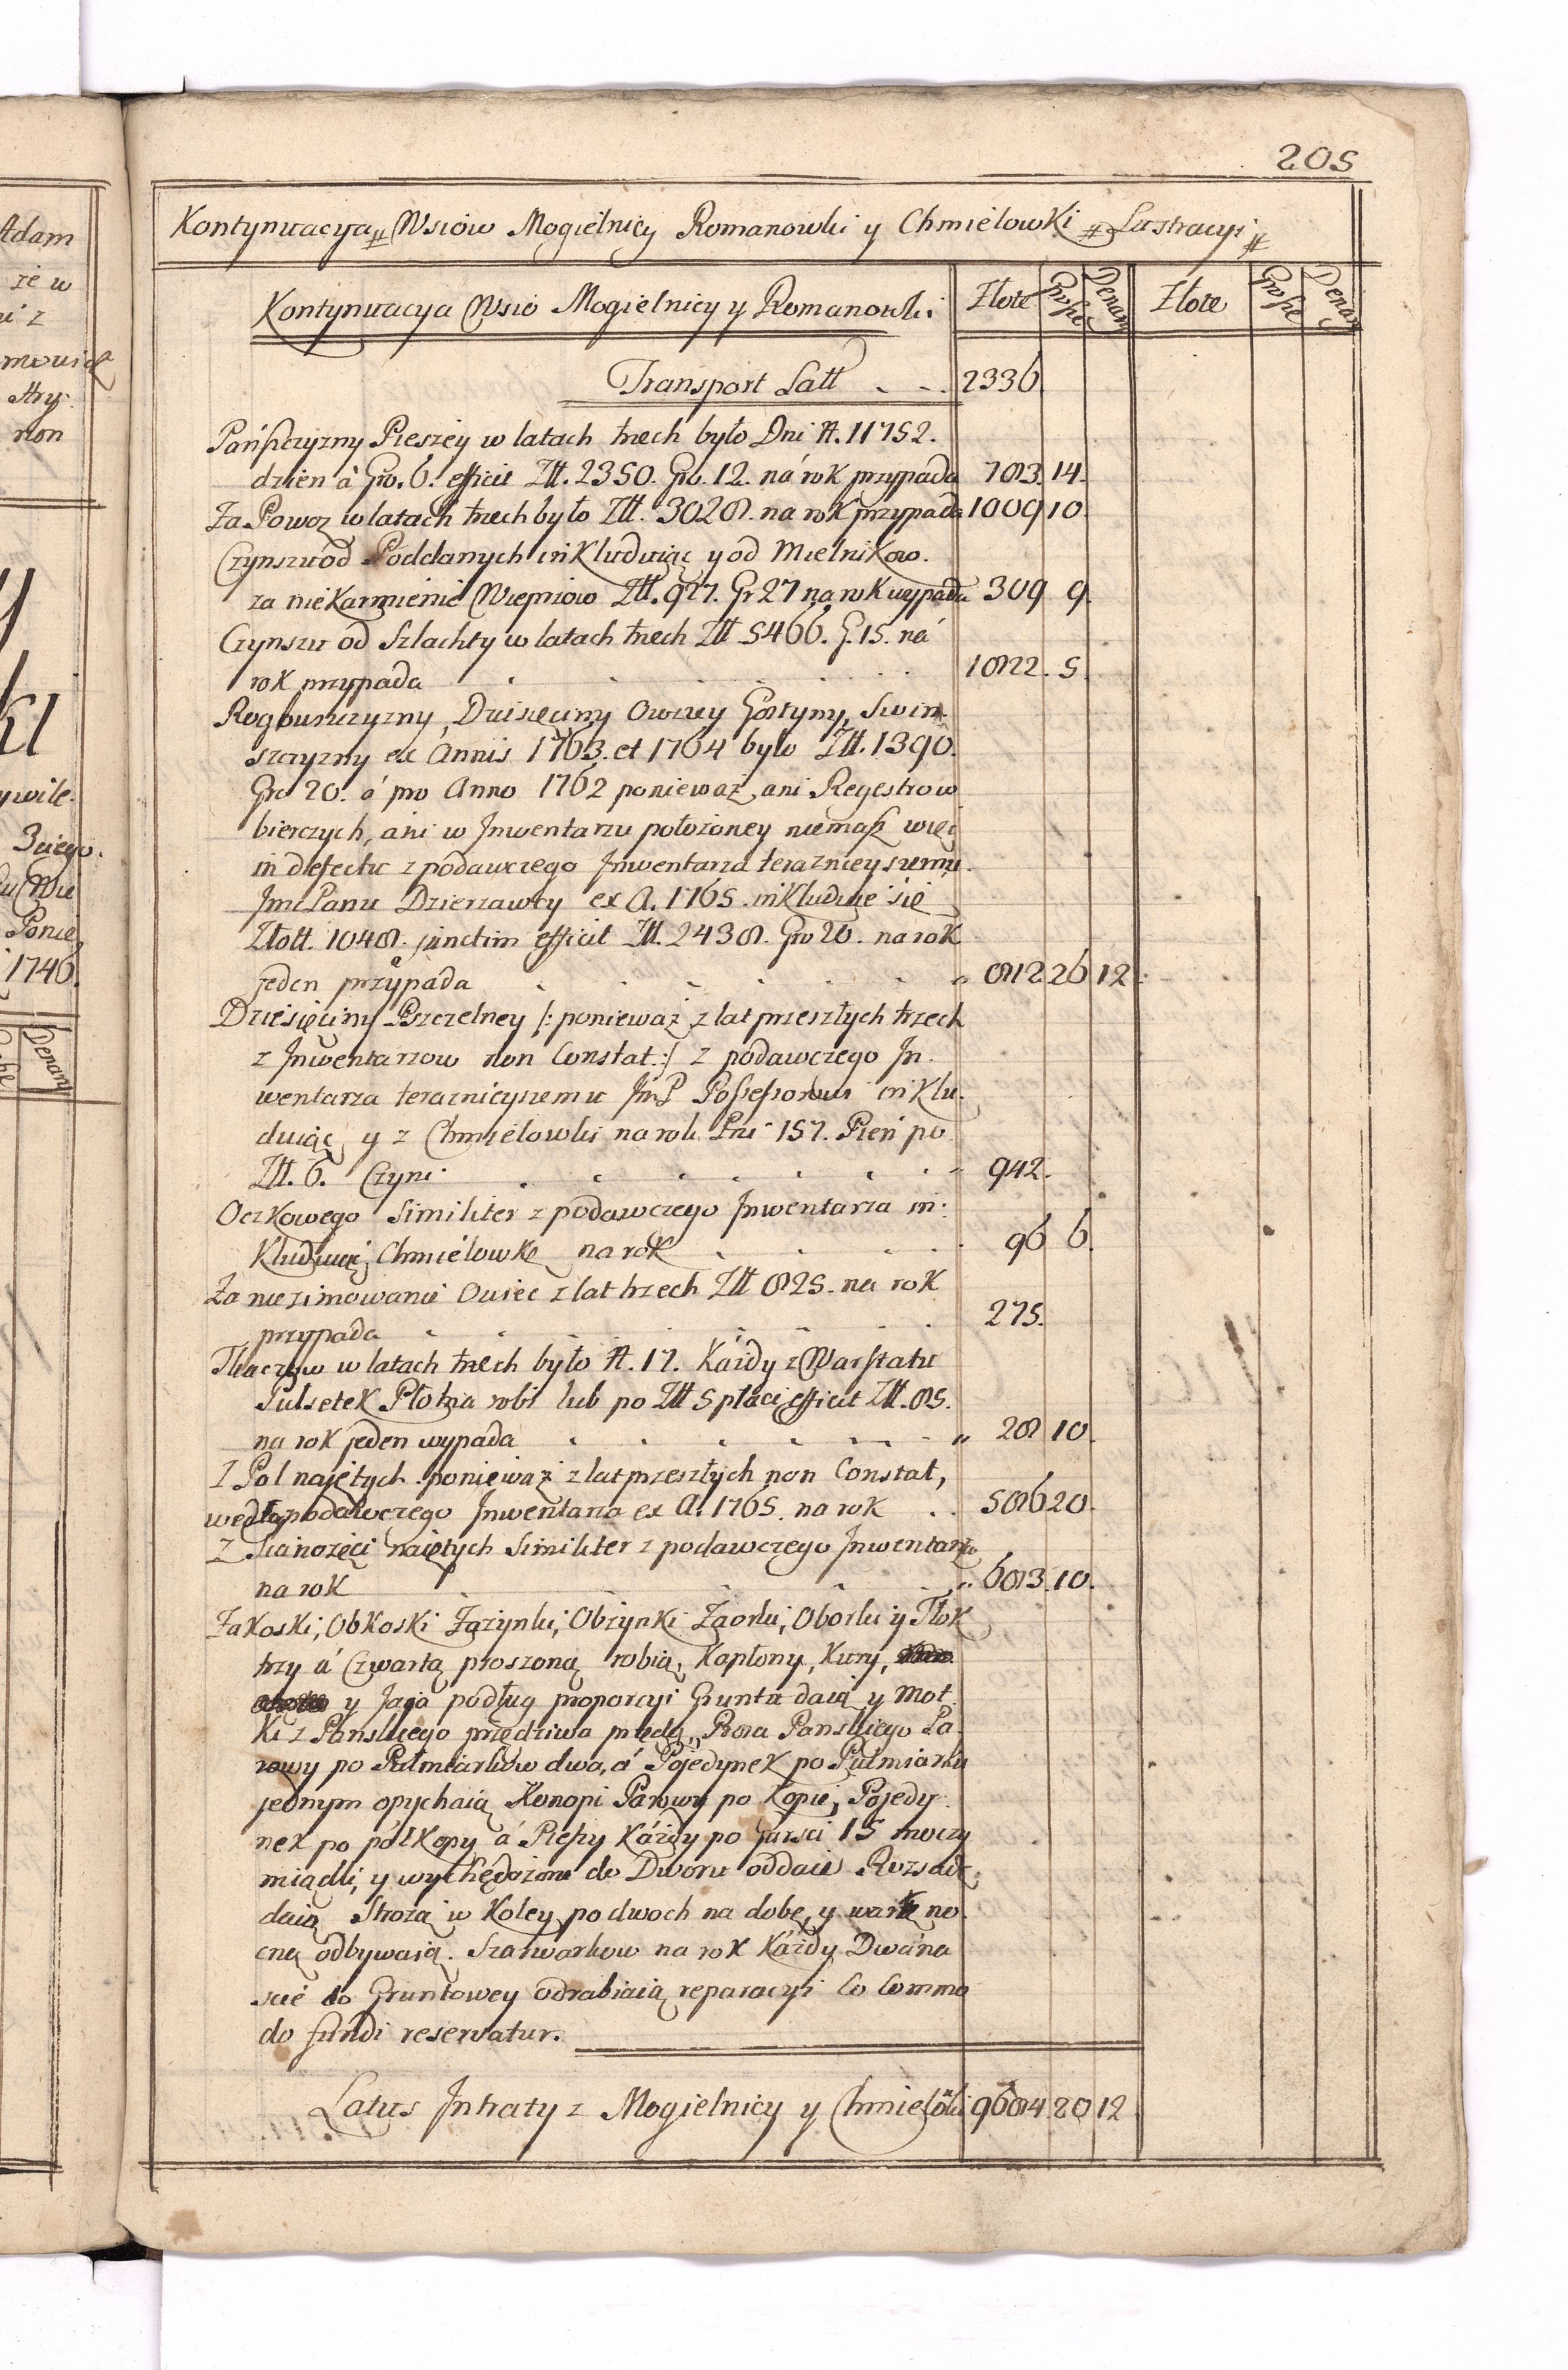 Adam
że w
z
mowi
non
ywile.
3ciego.
Ponie
1746.
Denary
205
Kontynuacya Wsiów Mogielnicy Romanowki y Chmielowki Lustracyi
Kontynuacya Wsió Mogielnicy y Romanowki. Złote Grosze Denary Złote Grosze Denary
Transport Latt - - 2336.
Pańszczyzny Pieszey w latach trzech było Dni #. 11752.
dzien â Gro. 6. efficit Ztt. 2350. Gro. 12. ná rok przypada 783. 14.
Za Powoz w latach trzech było Ztt. 3028. na rok przypada 1009 10.
Czynszu od Poddanych inkluduiąc y od Mielnikow.
za niekarmienie Wieprzow Ztt. 927. Gr 27 na rok wypada 309 9.
Czynszu od Szlachty w latach trzech Ztt 5466. G. 15. ná
rok przypada 1822. 5.
Rogowszczyzny, Dziesięciny Owczey Gostyny, Swin-
szczyzny ex Annis 1763. et 1764 było Ztt. 1390.
Gro 20. á pro Anno 1762 ponieważ ani Regestrow
bierczych, áni w Jnwentarzu położoney niemasz więc
in defectu z podawczego Jnwentarza teraznieyszemu.
JmcPanu Dzierzawcy ex A. 1765. inkluduie się
Złott. 1048. junctim efficit Ztt. 2438. Gro 20. na rok
jeden przypada 812. 26 12.
Dziesięciny Pszczelney /: ponieważ z lat przeszłych trzech
z Jnwentarzow non Constat:/ z podawczego Jn-
wentarza teraznieyszemu JmP Possessorowi inklu-
duiąc y z Chmielowki na rok Pni 157. Pień po
Ztt. 6. Czyni 942.
Oczkowego Similiter z podawczego Jnwentarza in:
kluduiąc Chmielowkę na rok 96 6.
Za niezimowanie Owiec z lat trzech Ztt 825. na rok
przypada 275.
Tkaczow w latach trzech było #. 17. Káżdy z Warsztatu
Pułsetek Płotna robi lub po Ztt 5 płaci efficit Ztt. 85.
na rok jeden wypada 28 10.
Z Pol najętych ponieważ z lat przeszłych non Constat,
według podawczego Jnwentarza ex A. 1765. na rok 586 20.
Z Sianożęci naiętych Similiter z podawczego Jnwentarza
na rok 683. 10.
Zakoski, Obkoski Zażynki, Obżynki Zaorki, Oborki y Tłok
trzy á Czwartą proszoną robią, Kapłony, Kury,
y Jaja podług proporcyi Gruntu daią y Mot-
ki z Pańskiego przędziwa przędą, Prosa Pańskiego Pa-
rowy po Pułmiarkow dwa, á Pojedynek po Pułmiarku
jednym opychaią Konopi Parowy po Kopie, Pojedy-
nek po pół Kopy á Pieszy Káżdy po Garsci 15 moczy
miądli, y wychędożone do Dworu oddaie Rozsadę
daią Strożą w Koley po dwoch na dobę, y wartę no-
cną odbywaią. Szarwarkow na rok Káżdy Dwána-
scie do Gruntowey odrabiaią reparacyi co commo
do fundi reservatur.
Latus Jntraty z Mogielnicy y Chmielówki 9684 20 12